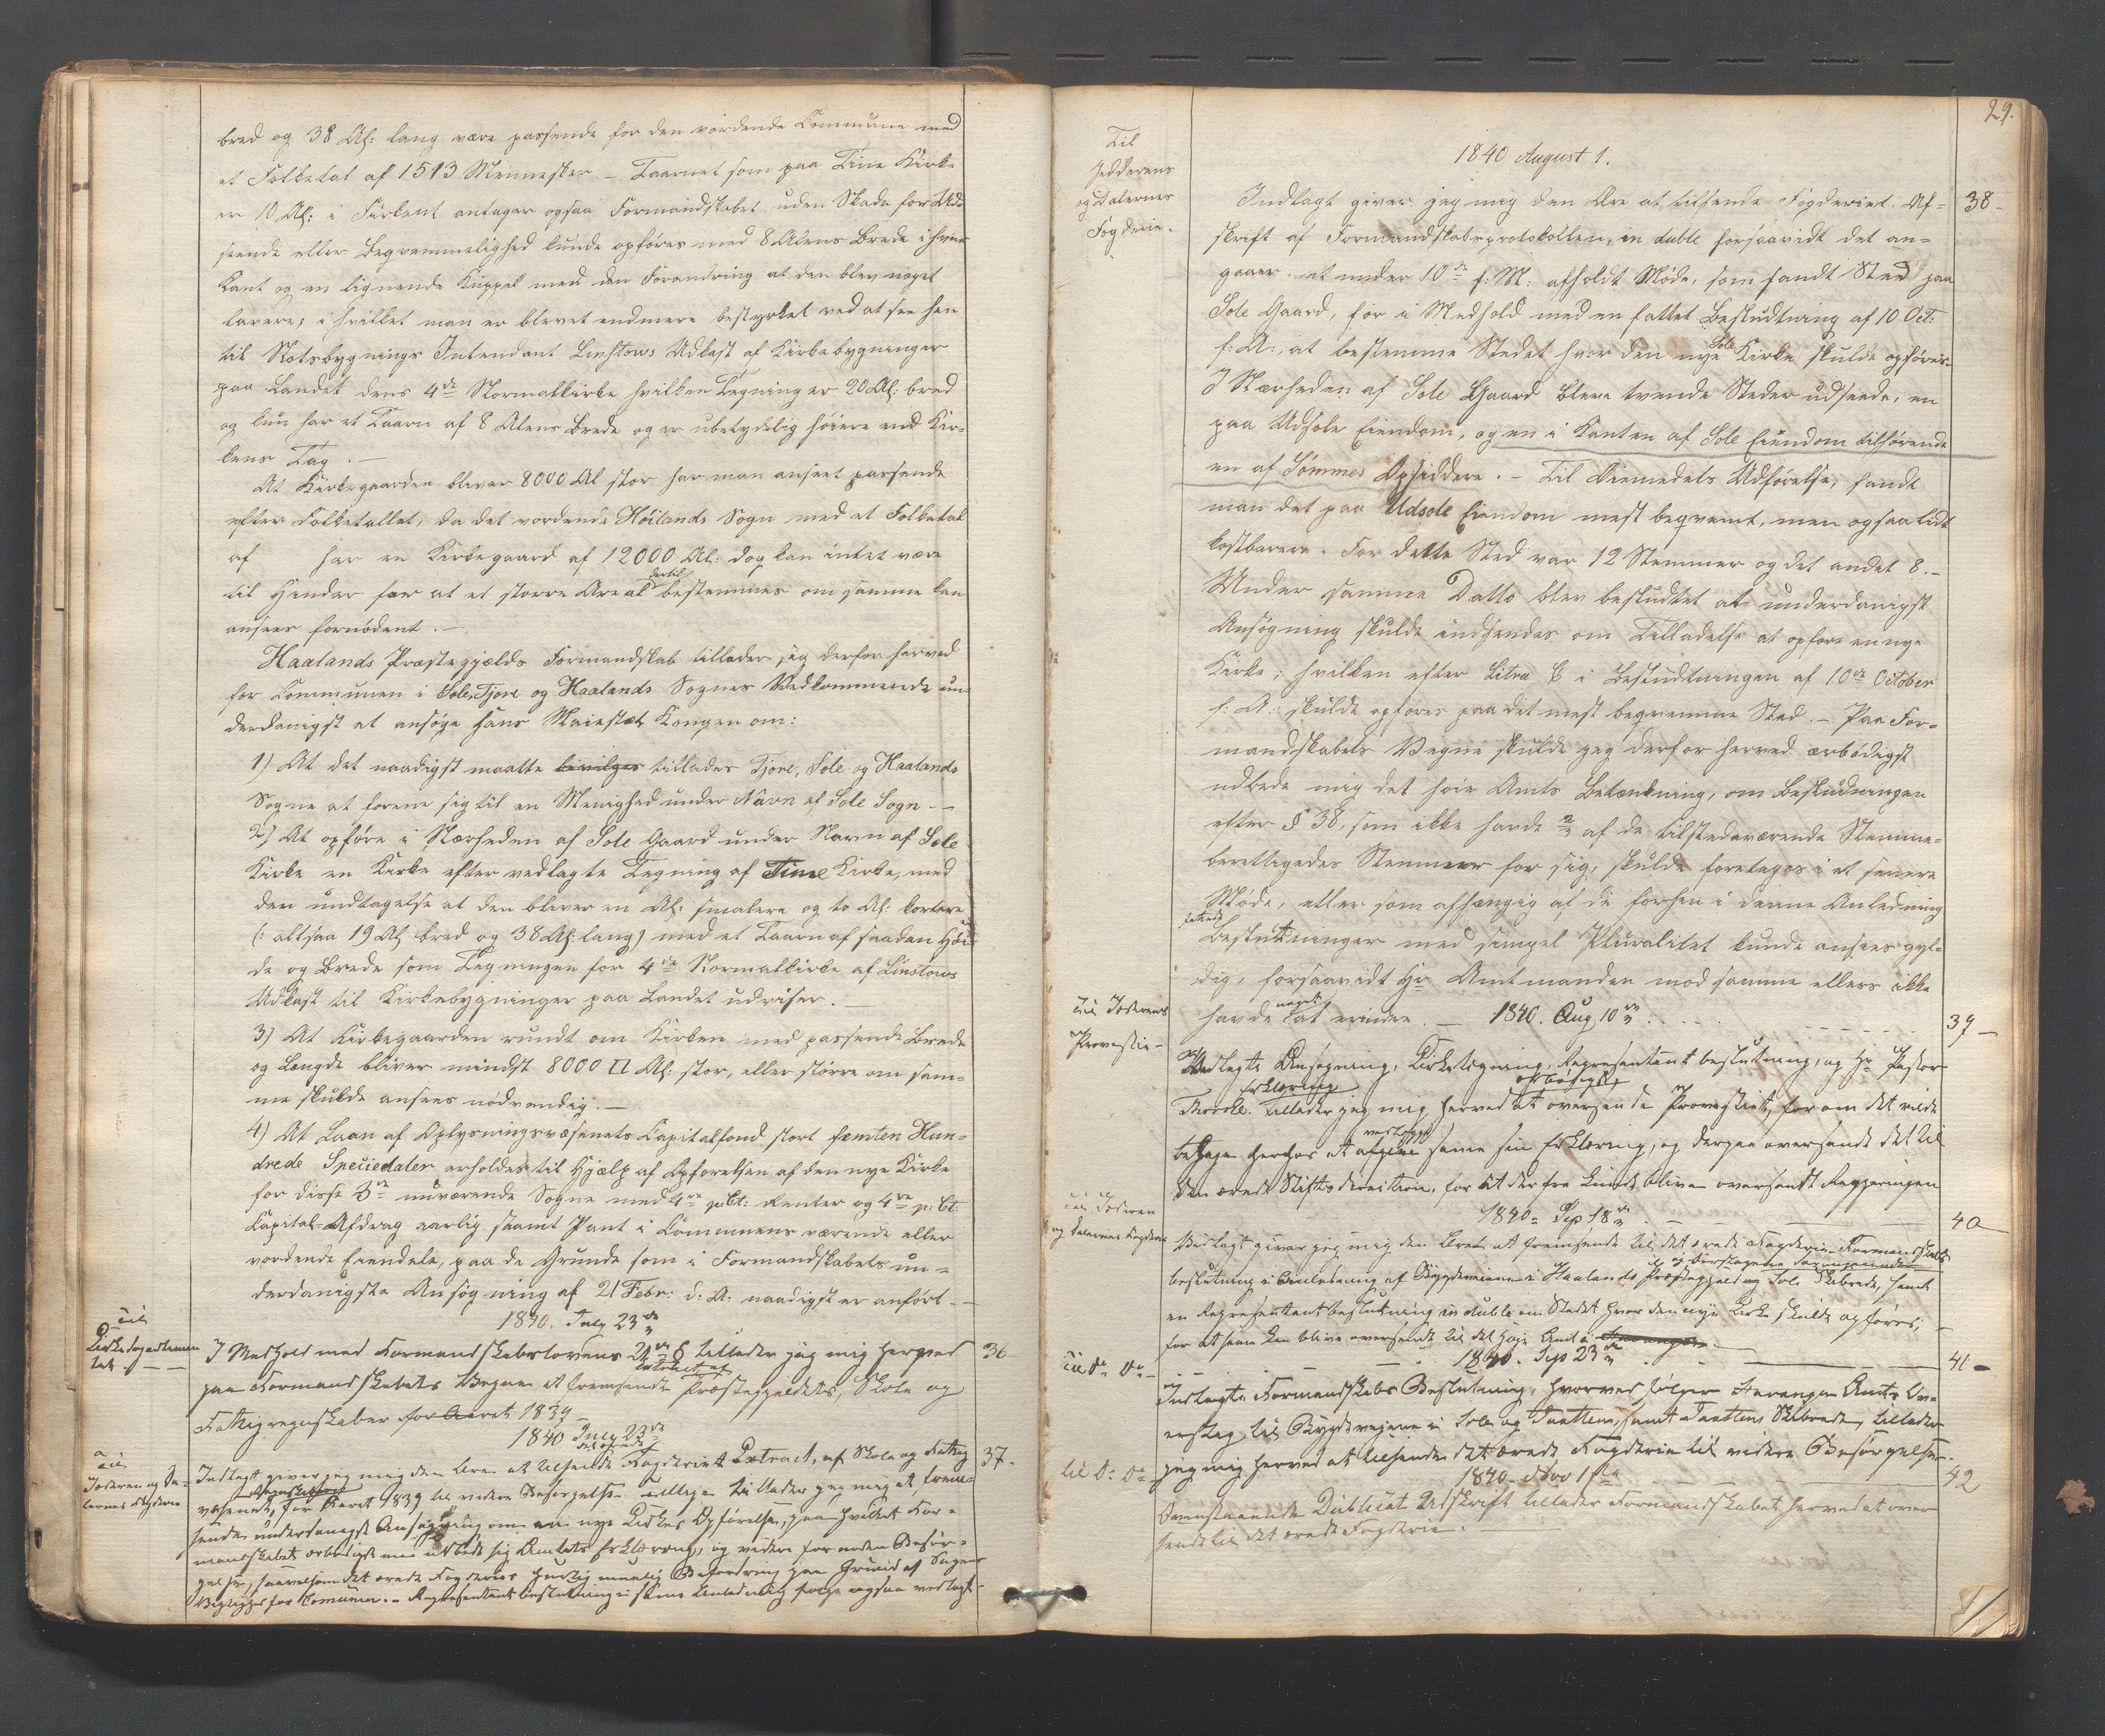 bred og 38 Al: lang være passende for den vordende Commune med
et Folketal af 1513 Mennesker. – Taarnet som paa Time Kirke
er 10 Al: i Firkant antager ogsaa Formandskabet uden Skade for Ud-
seende eller Beqvemmelighed kunde opføres med 8 Alens Brede i hver
Kant og en lignende Kuppel med den Forandring at den blev noget
lavere; i hvilket man er blevet endmere bestyrket ved at see hen
til Slotsbygnings Intendant Linstows Udkast af Kirkebygninger
paa Landet dens 4de Normalkirke hvilken Tegning er 20 Al: bred
og kun har et Taarn af 8 Alens Brede og er ubetydelig høiere end Kir-
kens Tag. –
At Kirkegaarden bliver 8000 Al stor har man anseet passende
efter Folketallet, da det vordende Höilands Sogn med et Folketal
af har en Kirkegaard af 12000 Al: dog kan intet være
til Hinder for at et større Areal dertil bestemmes om samme kan
ansees fornødent. –
Haalands Præstegjælds Formandskab tillader sig derfor herved
for Communen i Sole, Tjore og Haalands Sognes Vedkommende un-
derdanigst at ansøge Hans Maiestæt Kongen om:
1) At det naadigst maatte bevilges tillades Tjore, Sole og Haalands
Sogne at forene sig til en Menighed under Navn af Sole Sogn –
2) At opføre i Nærheden af Sole Gaard under Navn af Sole
Kirke en Kirke efter vedlagte Tegning af Time Kirke, med
den undtagelse at den bliver en Al: smalere og to Al: kortere
(: altsaa 19 Al bred og 38 Al: lang) med et Taarn af saadan Høi-
de og Brede som Tegningen for 4de Normalkirke af Linstows
Udkast til Kirkebygninger paa Landet udviser. –
3) At Kirkegaarden rundt om Kirken med passende Brede
og Længde bliver mindst 8000 □ Al: stor, eller større om sam-
me skulde ansees nødvendig. –
4) At Laan af Oplysningsvæsenets Capitalfond stort femten Hun-
drede Speciedaler erholdes til Hjælp af Opførelsen af den nye Kirke
for disse 3de nuværende Sogne med 4re p:Ct: Renter og 4re p:Ct:
Capital-Afdrag aarlig samt Pant i Communens værende eller
vordende Eiendele, paa de Grunde som i Formandskabets un-
derdanigste Ansøgning af 21 Febr: d: A: naadigst er anført –
1840. July 23de
Til
Kirkedepartemen
tet
I Medhold med Formandskabslovens 21de § tillader jeg mig herved 36
paa Formandskabets Vegne at fremsende Extract af Præstegjeldets, Skole og
Fattigregnskaber for Aaret 1839
1840 July 23de
Til
Jæderen og Da-
lernes Fogderie
Indlagt giver jeg mig den Ære at tilsende Fogderiet Extract, af Skole og Fattig 37.
væsenets Regnskaber for Aaret 1839 til videre Besørgelse tillige tillader jeg mig at frem-
sende underdanigst Ansøgning om en nye Kirkes Opførelse, paa hvilket For-
mandskabet ærbødigst maa udbede sig Amtets Erklæring, og videre fornøden Besør-
gelse, saavelsom det ærede Fogderies hurtig muelig Befordring paa Grund af Sagens
Vigtighed for Comunen. – Repræsentantbeslutning i denne Anledning følge ogsaa vedlagt
29.
1840 August 1.
Til
Jedderens
og Dalernes
Fogderie.
Indlagt giver jeg mig den Ære at tilsende Fogderiet Af- 38 –
skrift af Formandskabsprotokollen, in duble forsaavidt det an-
gaaer et under 10de f: M: afholdt Møde, som fandt Sted paa
Sole Gaard, for i Medhold med en fattet Beslutning af 10 Oct:
f: A:, at bestemme Stedet hvor den nye Sole Kirke skulde opføres.
I Nærheden af Sole Gaard bleve tvende Steder udseede, en
paa Udsole Eiendom, og en i Kanten af Sole Eiendom tilhørende
en af Sömmes Opsiddere. – Til Öiemedets Udførelse, fandt
man det paa Udsole Eiendom mest beqvemt, men ogsaa lidt
kostbarere. For dette Sted var 12 Stemmer og det andet 8. –
Under samme Datto blev besluttet at underdanigst
Ansøgning skulde indsendes om Tilladelse at opføre en nye
Kirke; hvilken efter Litra C i Beslutningen af 10de October
f: A: skulde opføres paa det mest beqvemme Sted. – Paa For-
mandskabets Vegne skulde jeg derfor herved ærbødigst
udbede mig det høie Amts Betænkning, om Beslutningen
efter § 38, som ikke havde 2/3 af de tilstedeværende Stemme-
berettigedes Stemmer for sig, skulde foretages i et senere
Møde, eller som afhængig af de forhen i denne Anledning
fattede Beslutninger med simpel Pluralitet kunde ansees gyl-
dig, forsaavidt Hr Amtmanden mod samme ellers ikke
havde noget at erindre. – 1840. Aug 10de 39 –
Til Jæderens
Provestie –
Vedlagte Ansøgning, Kirketegning, Repræsentant beslutning, og Hr Pastor
Erklæring tillader jeg mig herved ærbødigst at oversende Provestiet, for om det vilde
behage herhos at vedføye samme sin Erklæring, og derpaa oversende det til
den ærede Stiftsdirection, for at derfra kunde blive oversendt Regjeringen
1840 – Sep 18de 40
Til Jæderen
og Dalernes Fogderie
Vedlagt giver jeg mig den Ære at fremsende til det ærede Fogderie Formandskabs
beslutning i Anledning af Bygdeveiene i Haalands Præstegjeld og Sole Skibrede, samt
en Repræsentantbeslutning in duble om Stedet hvor den nye Kirke skulde opføres;
for at samme kan blive oversendt til det høie Amt
1840. Sep 23de 41 –
Til do do –
Indlagte Formandskabs Beslutning, hvorved følger Stavanger Amts Ove-
erslag til Bygdeveiene i Sole og Skibrede, tillader
jeg mig herved at tilsende det ærede Fogderie til videre Besørgelse.
1840 Nov 1ste 42
til do do
Ovenstaaende Dublicat Udskrift tillader Formandskabet herved at over
sende til det ærede Fogderie.